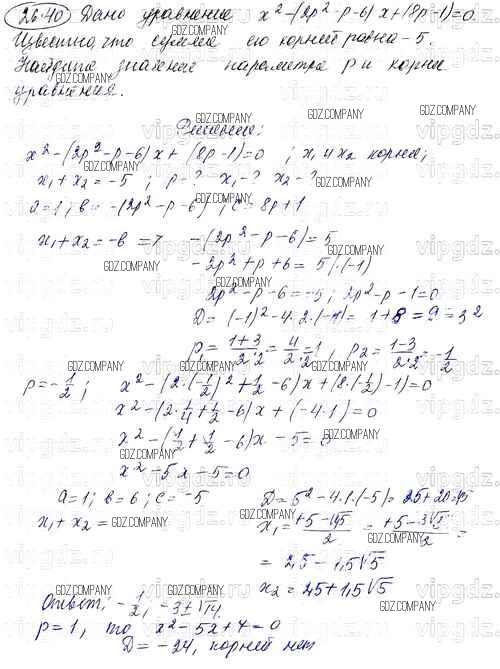 26.40 Дано уравнение x² - (2p² - p - 6)x + (8p - 1) = 0.
Известно, что сумма его корней равна -5.
Найдите значения параметра p и корни
уравнения.
Решение:
x² - (2p² - p - 6)x + (8p - 1) = 0 ; x₁ и x₂ корни;
x₁ + x₂ = -5 ; p - ? x₁ - ? x₂ - ?
a = 1; b = -(2p² - p - 6) ; c = 8p + 1
x₁ + x₂ = -b => -(2p² - p - 6) = 5
-2p² + p + 6 = 5 | · (-1)
2p² - p - 6 = -5 ; 2p² - p - 1 = 0
D = (-1)² - 4 · 2 · (-1) = 1 + 8 = 9 = 3²
p₁ = (1+3)/(2·2) = 4/(2·2) = 1 , p₂ = (1-3)/(2·2) = -1/2
p = -1/2 ; x² - (2·(-1/2)² + 1/2 - 6)x + (8·(-1/2) - 1) = 0
x² - (2·1/4 + 1/2 - 6)x + (-4·1) = 0
x² - (1/2 + 1/2 - 6)x - 5 = 0
x² - 5x - 5 = 0
a = 1; b = 6; c = -5 D = 5² - 4·1·(-5) = 25 + 20 = 45
x₁ + x₂ = x₁ = (+5 - √45)/2 = (+5 - 3√5)/2 =
= 2,5 - 1,5√5
x₂ = 2,5 + 1,5√5
Ответ: -1/2, -3 ± √14.
p = 1, то x² - 5x + 4 = 0
D = -24, корней нет
GDZ.COMPANY
vipgdz.ru